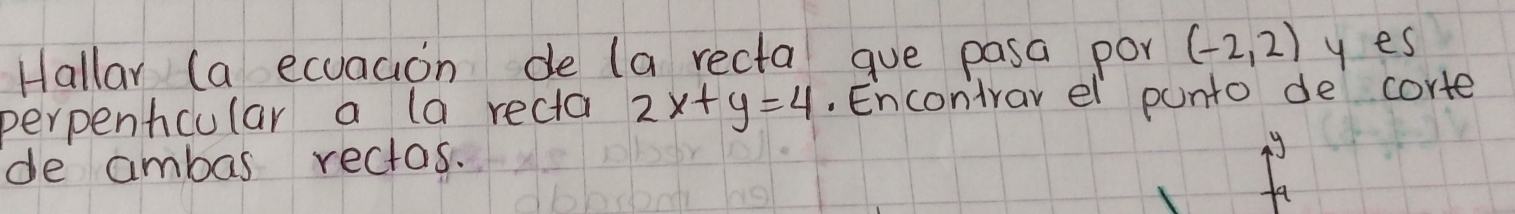 Hallar la ecuación de la recta que pasa por (-2,2) y es
perpenticular a la recta 2x+y=4. Encontrar el punto de corte
de ambas rectas.
y